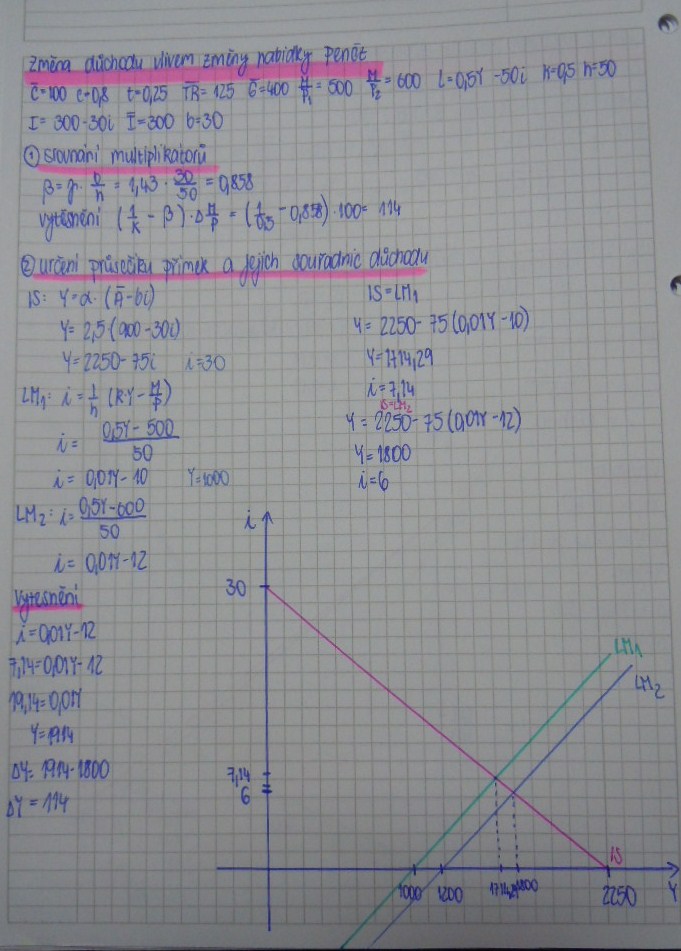 Změna důchodu vlivem změny nabídky peněz
C̄=100 c=0,8 t=0,25 T̄R̄=125 Ḡ=400 M/P₁=500 M/P₂=600 L=0,5Y-50i k=0,5 h=50
I=300-30i Ī=300 b=30
① srovnání multiplikátorů
β=γ·b/h=1,43·30/50=0,858
vytěsnění (1/k-β)·ΔM/P=(1/0,5-0,858)·100=114
② určení průsečíku přímek a jejich souřadnic důchodu
IS: Y=α·(Ā-bi)
Y=2,5(900-30i)
Y=2250-75i i=30
LM₁: i=1/h (k·Y-M/P)
i=0,5Y-500/50
i=0,01Y-10 Y=1000
LM₂: i=0,5Y-600/50
i=0,01Y-12
IS=LM₁
Y=2250-75(0,01Y-10)
Y=1714,29
i=7,14
IS=LM₂
Y=2250-75(0,01Y-12)
Y=1800
i=6
Vytěsnění
i=0,01Y-12
7,14=0,01Y-12
19,14=0,01Y
Y=1914
ΔY=1914-1800
ΔY=114
i
30
7,14
6
LM₁
LM₂
IS
1000 1200 1714,29 1800 2250 Y